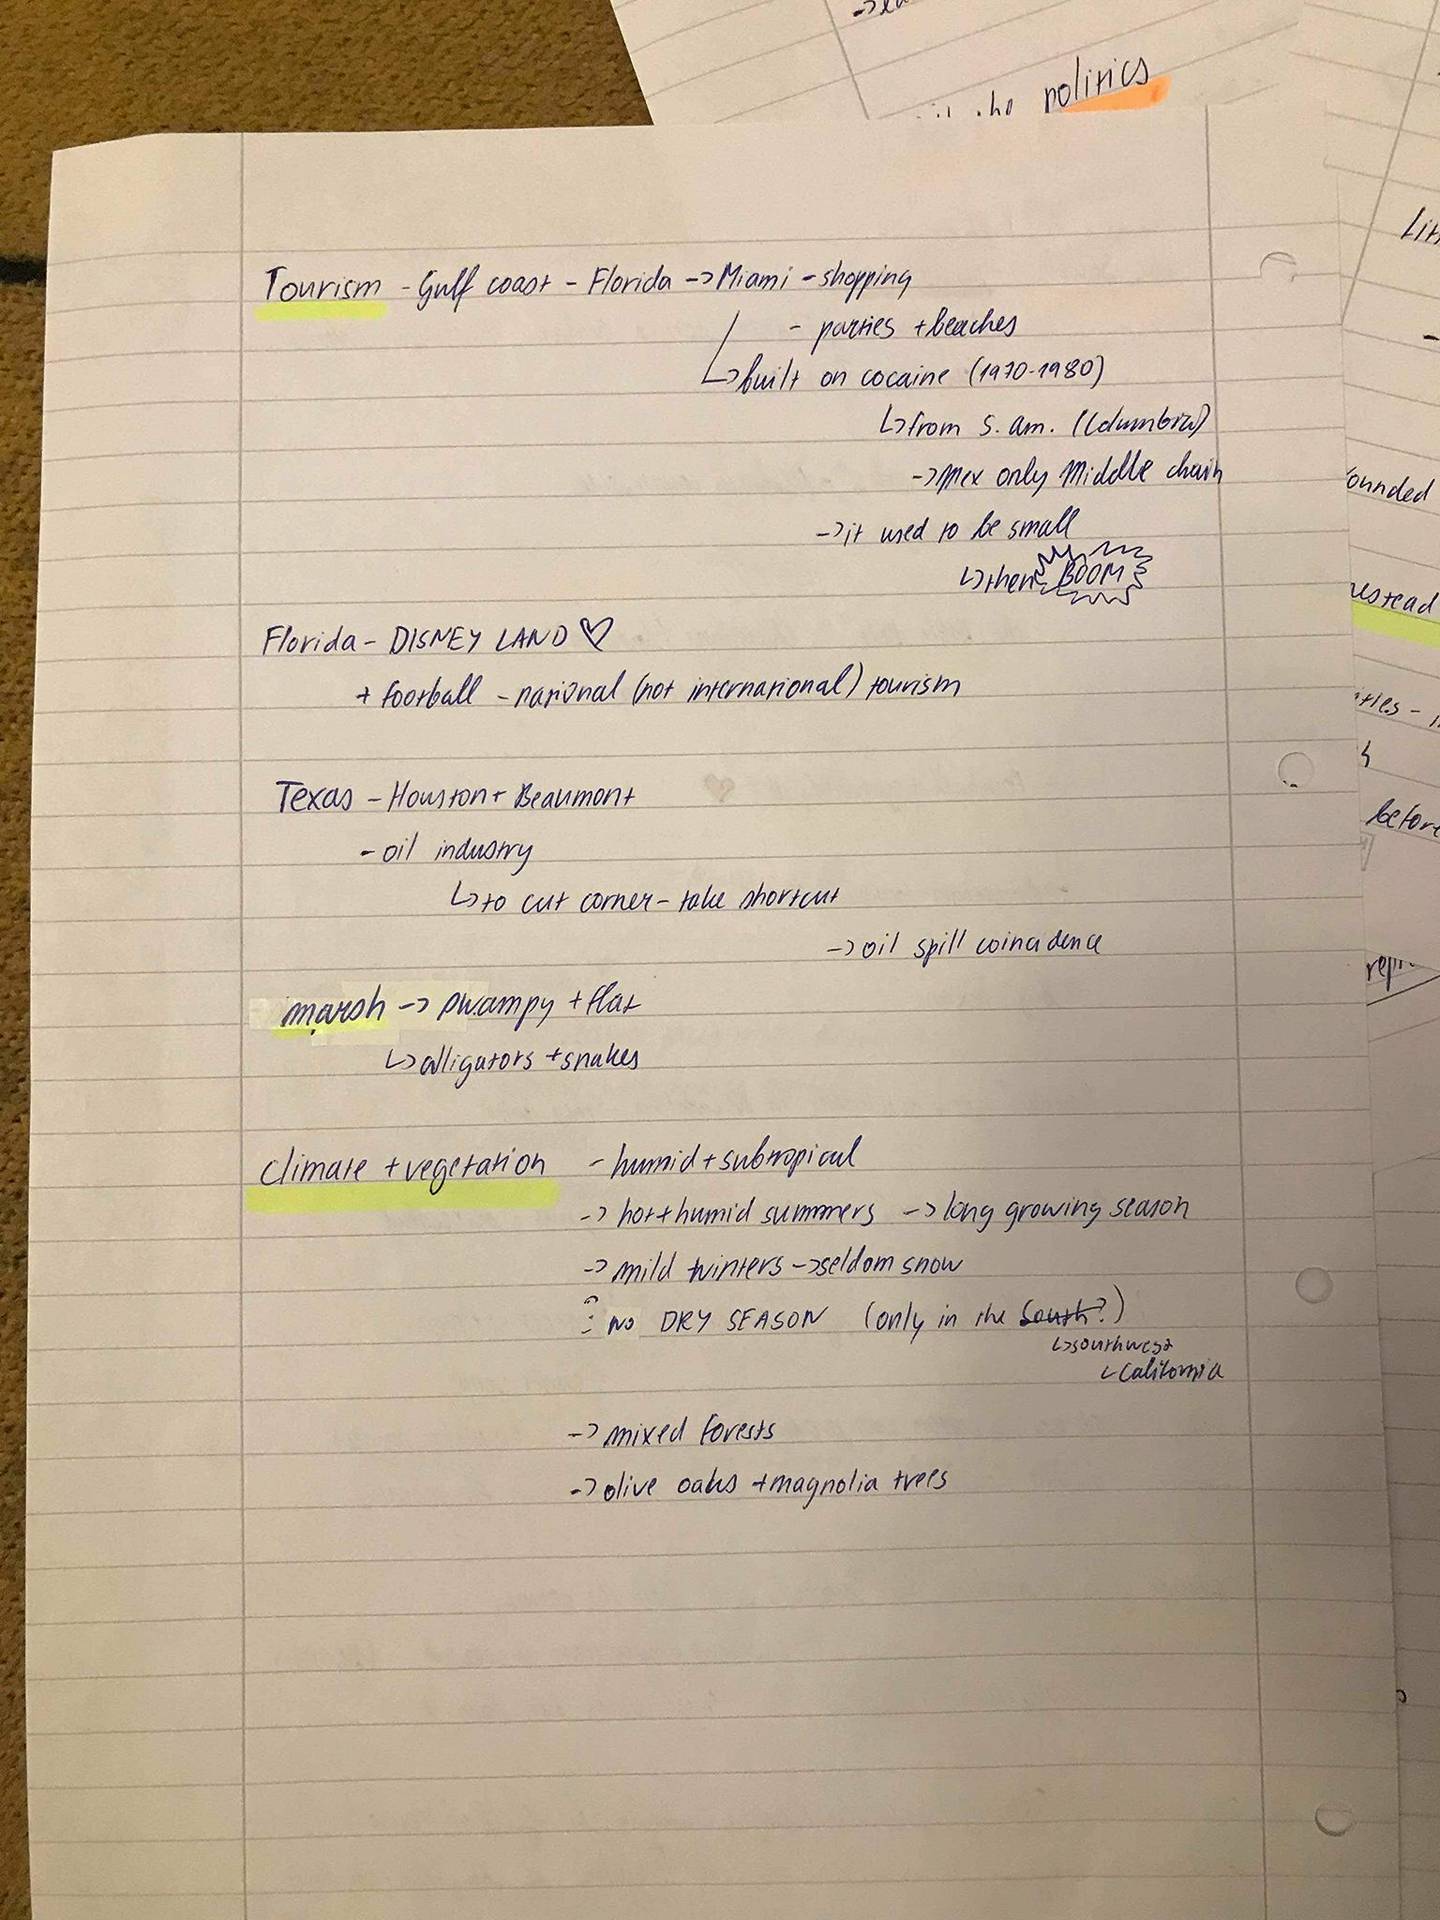 politics
Tourism - Gulf coast - Florida -> Miami - shopping
- parties + beaches
↳ built on cocaine (1970-1980)
↳ from S. am. (Columbia)
-> Mex only Middle chain
-> it used to be small
↳ then BOOM
Florida - DISNEY LAND ♡
+ football - national (not international) tourism
Texas - Houston + Beaumont
- oil industry
↳ to cut corner - take shortcut
-> oil spill coincidence
marsh -> swampy + flat
↳ alligators + snakes
climate + vegetation - humid + subtropical
-> hot + humid summers -> long growing season
-> mild winters -> seldom snow
NO DRY SEASON (only in the South?)
↳ southwest
↳ California
-> mixed forests
-> olive oaks + magnolia trees
ounded
estead
before